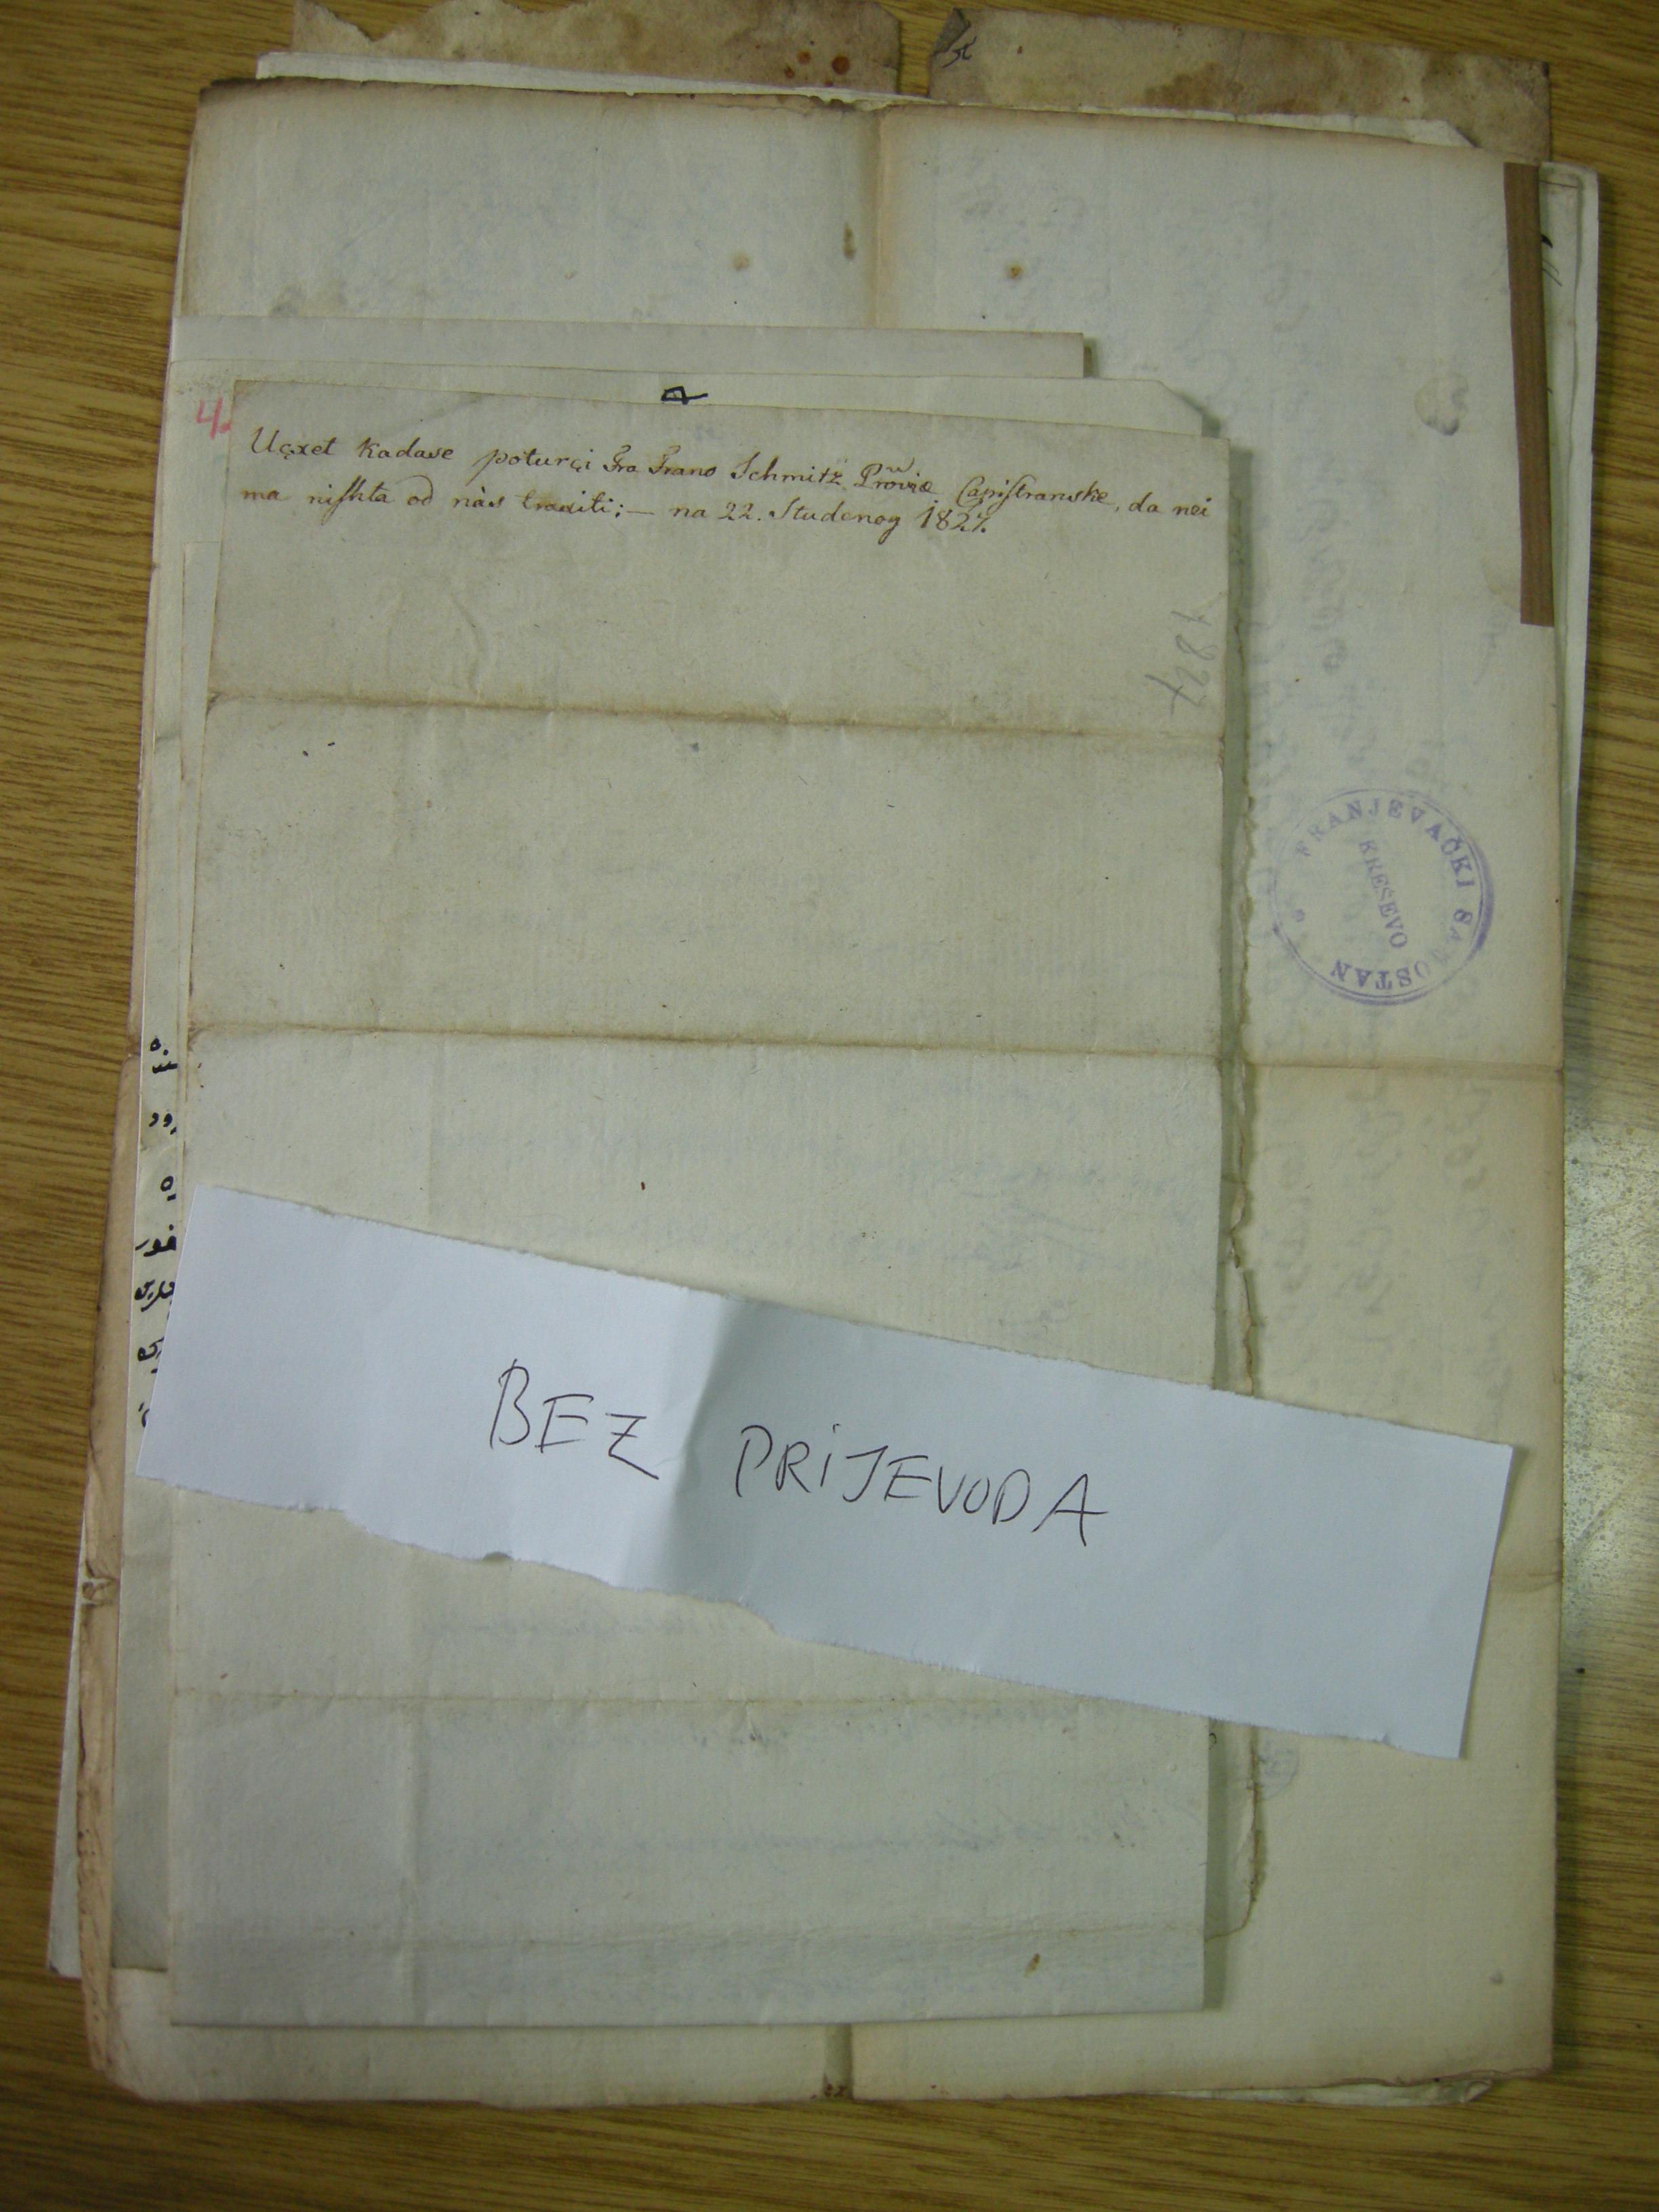 4.
Ucxet kadase poturçi Fra Frano Schmitz Prov.æ Capistranske, da nei
ma nishta od nàs traxiti; — na 22. Studenog 1827.
1827
FRANJEVAČKI SAMOSTAN
KREŠEVO
BEZ PRIJEVODA